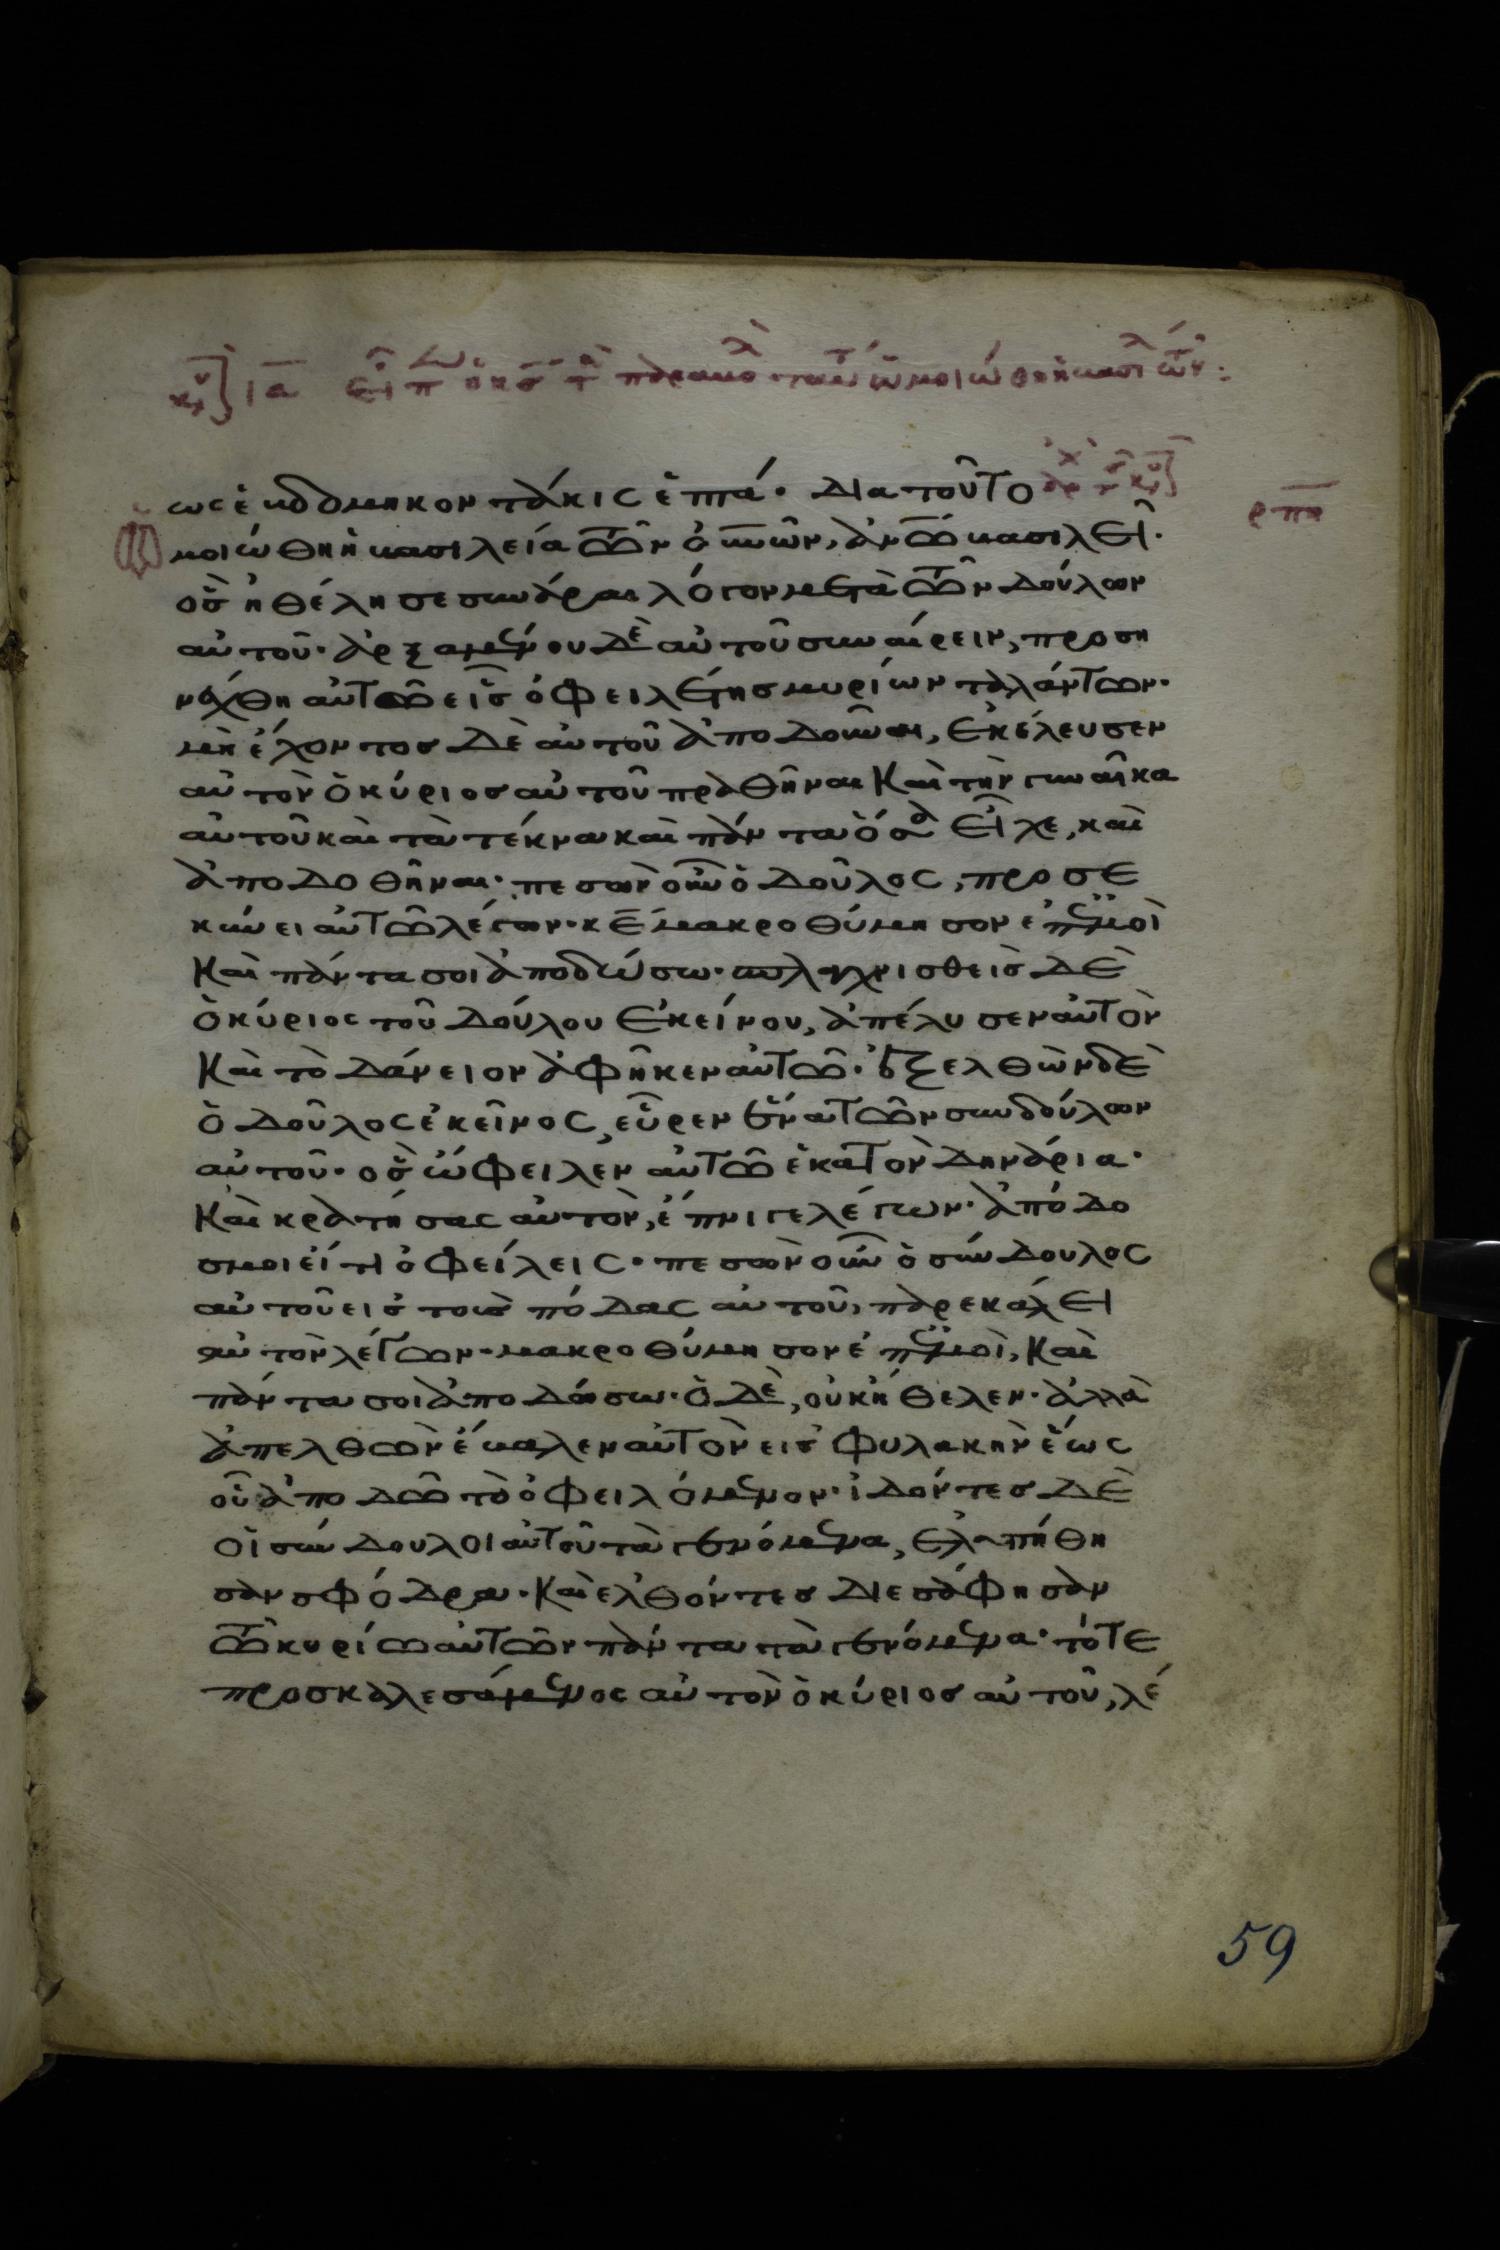 κυ ια ειπ ο κς τ παραβο ταυτ ωμοιωθη η βασι των:
ως ἑβδομηκοντάκις ἑπτά· Δια τοῦτο αρχ τ κυ
ρπη
μοιώθη ἡ βασιλεία τῶν οὐνῶν, ἀνῶ βασιλεῖ·
ὃς ἠθέλησε συνάραι λόγον μετὰ τῶν δούλων
αὐτοῦ· ἀρξαμένου δὲ αὐτοῦ συναίρειν, προση
νάχθη αὐτῶ εἷς ὀφειλέτης μυρίων ταλάντων·
μὴ ἔχοντος δὲ αὐτοῦ ἀποδοῦναι, ἐκέλευσεν
αὐτὸν ὁ κύριος αὐτοῦ πραθῆναι καὶ τὴν γυναῖκα
αὐτοῦ καὶ τὰ τέκνα καὶ πάντα ὅσα εἶχε, καὶ
ἀποδοθῆναι· πεσὼν οὖν ὁ δοῦλος, προσε
κύνει αὐτῶ λέγων· κε μακροθύμησον ἐπ' ἐμοὶ
καὶ πάντα σοι ἀποδώσω· σπλαγχνισθεὶς δὲ
ὁ κύριος τοῦ δούλου ἐκείνου, ἀπέλυσεν αὐτὸν
καὶ τὸ δάνειον ἀφῆκεν αὐτῶ· ἐξελθὼν δὲ
ὁ δοῦλος ἐκεῖνος, εὗρεν ἕνα τῶν συνδούλων
αὐτοῦ· ὃς ὤφειλεν αὐτῶ ἑκατὸν δηνάρια·
καὶ κρατήσας αὐτὸν, ἔπνιγε λέγων· ἀπόδο
ς μοι εἴ τι ὀφείλεις· πεσὼν οὖν ὁ σύνδουλος
αὐτοῦ εἰς τοὺς πόδας αὐτοῦ, παρεκάλει
αὐτὸν λέγων· μακροθύμησον ἐπ' ἐμοὶ, καὶ
πάντα σοι ἀποδώσω· ὁ δὲ, οὐκ ἤθελεν· ἀλλὰ
ἀπελθὼν ἔβαλεν αὐτὸν εἰς φυλακὴν ἕως
οὗ ἀποδῶ τὸ ὀφειλόμενον· ἰδόντες δὲ
οἱ σύνδουλοι αὐτοῦ τὰ γενόμενα, ἐλυπήθη
σαν σφόδρα· καὶ ἐλθόντες διεσάφησαν
τῶ κυρίω αὐτῶν πάντα τὰ γενόμενα· τότε
προσκαλεσάμενος αὐτὸν ὁ κύριος αὐτοῦ, λέ
59